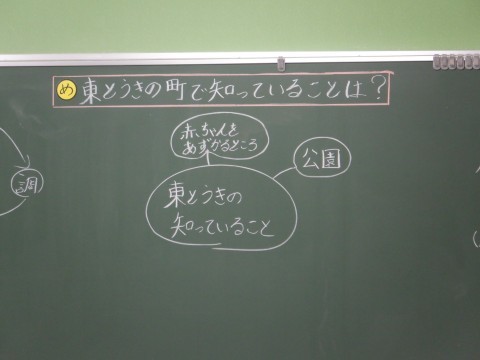 め 東とうきの町で知っていることは?
赤ちゃんを
あずかるところ
公園
東とうきの
知っていること
調